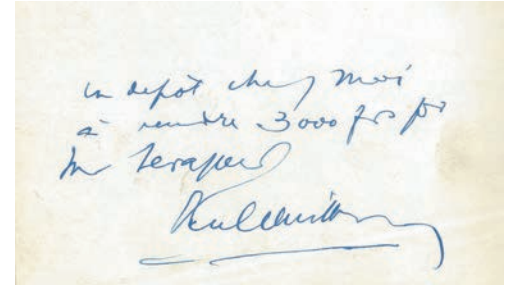 en depôt chez moi
à vendre 3000 frs pr
Mr
Paul